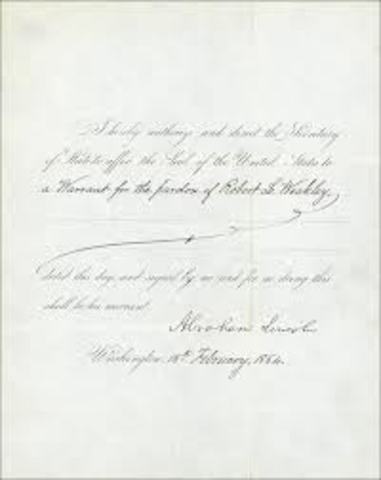 I hereby authorize and direct the Secretary
of State to affix the Seal of the United States to
a Warrant for the pardon of Robert L. Weakley
dated this day, and signed by me and for so doing this
shall be his warrant.
Abraham Lincoln
Washington, 18th February, 1864.